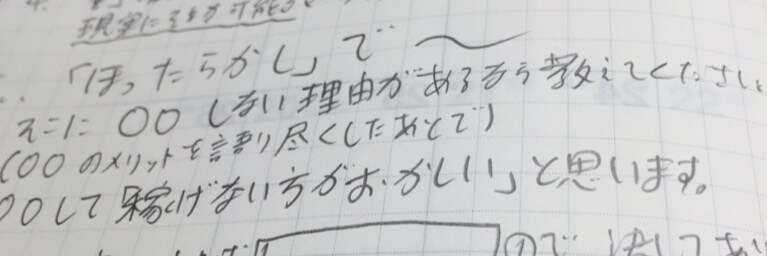 現実にそれが可能か
「ほったらかし」で 〜
そこに 〇〇 しない理由があるなら教えてください
(〇〇 のメリットを語り尽くしたあとで)
〇〇して稼げない方がおかしい」と思います。
①で 決してあり